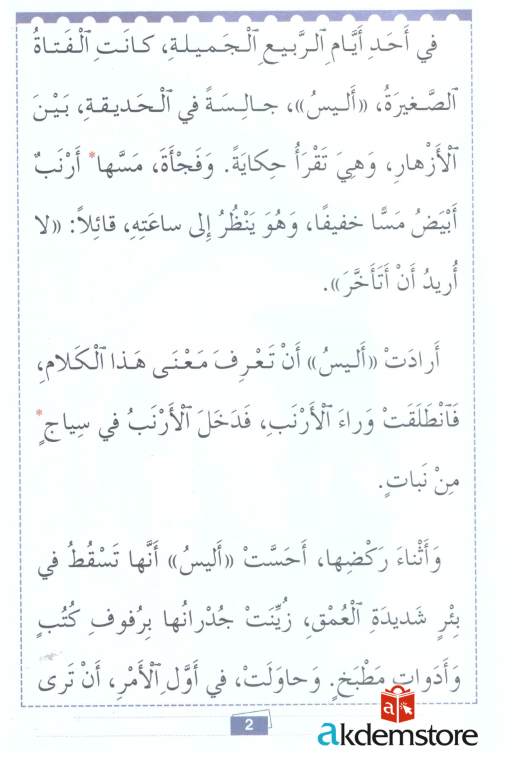 في أَحَدِ أَيَّامِ ٱلرَّبيعِ ٱلْجَميلةِ، كانَتِ ٱلْفَتاةُ
ٱلصَّغيرَةُ، «أَليسُ»، جالِسَةً في ٱلْحَديقةِ، بَيْنَ
ٱلْأَزْهارِ، وَهِيَ تَقْرَأُ حِكايَةً. وَفَجْأَةً، مَسَّها* أَرْنَبٌ
أَبْيَضُ مَسًّا خفيفًا، وَهُوَ يَنْظُرُ إِلى ساعَتِهِ، قائِلاً: «لا
أُريدُ أَنْ أَتَأَخَّرَ».
أَرادَتْ «أَليسُ» أَنْ تَعْرِفَ مَعْنَى هَذا ٱلْكَلامِ،
فَٱنْطَلَقَتْ وَراءَ ٱلْأَرْنَبِ، فَدَخَلَ ٱلْأَرْنَبُ في سِياجٍ*
مِنْ نَباتٍ.
وَأَثْناءَ رَكْضِها، أَحَسَّتْ «أَليسُ» أَنَّها تَسْقُطُ في
بِئْرٍ شَديدَةِ ٱلْعُمْقِ، زُيِّنَتْ جُدْرانُها بِرُفوفِ كُتُبٍ
وَأَدَواتِ مَطْبَخٍ. وَحاوَلَتْ، في أَوَّلِ ٱلْأَمْرِ، أَنْ تَرى
2
a
akdemstore